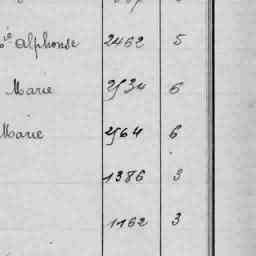 Alphonse 2462 5
Marie 2534 6
Marie 2564 6
1386 3
1162 3